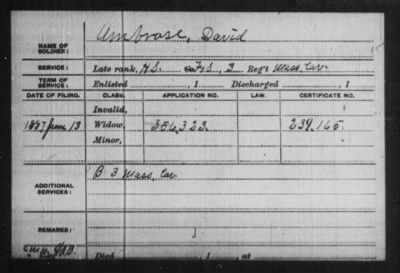 NAME OF SOLDIER: Ambrose, David
SERVICE: Late rank, H.S. F&S, 3 Reg't Mass. Cav.
TERM OF SERVICE: Enlisted , 1 Discharged , 1
DATE OF FILING. CLASS. APPLICATION NO. LAW. CERTIFICATE NO.
Invalid,
1887 June 13 Widow, 354,323. 239,165.
Minor,
ADDITIONAL SERVICES: B 3 Mass. Cav
REMARKS:
Died , 1 , at